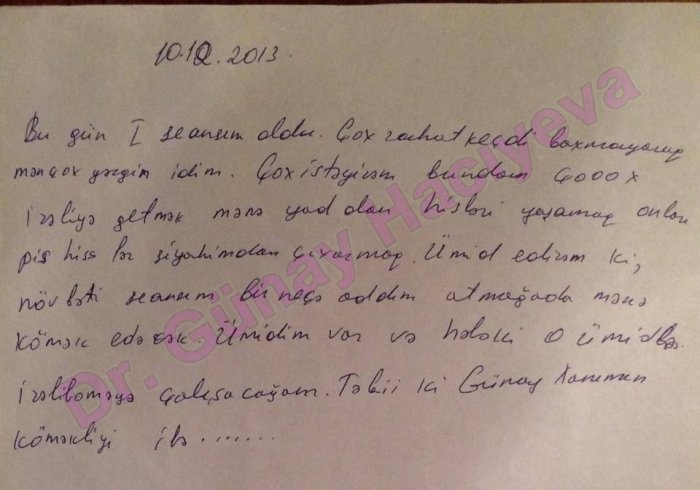 10.12.2013
Bu gün I seansım oldu. Çox rahat keçdi baxmayaraq
mən çox gərgin idim. Çox istəyirəm bundan çooox
irəliyə getmək mənə yad olan hisləri yaşamaq onları
pis hiss lər siyahımdan çıxarmaq. Ümid edirəm ki,
növbəti seansım bir neçə addım atmağada mənə
kömək edəcək. Ümidim var və hələki o ümidlə
irəliləməyə çalışacağam. Təbii ki Günay xanımın
köməkliyi ilə.......
Dr. Günay Hacıyeva